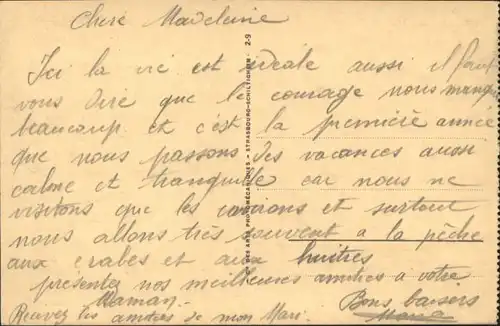 Cheré Madeleine
Ici la vie est idéale aussi il faut
vous dire que le courage nous manque
beaucoup et c'est la première année
que nous passons des vacances aussi
calme et tranquille car nous ne
visitons que les environs et surtout
nous allons très souvent a la pêche
aux crabes et aux huitres
présentez nos meilleures amities a votre
Maman. Bons baisers
Recevez les amities de mon Mari. Marie
DES ARTS PHOTOMÉCANIQUES - STRASBOURG-SCHILTIGHEIM 2-9